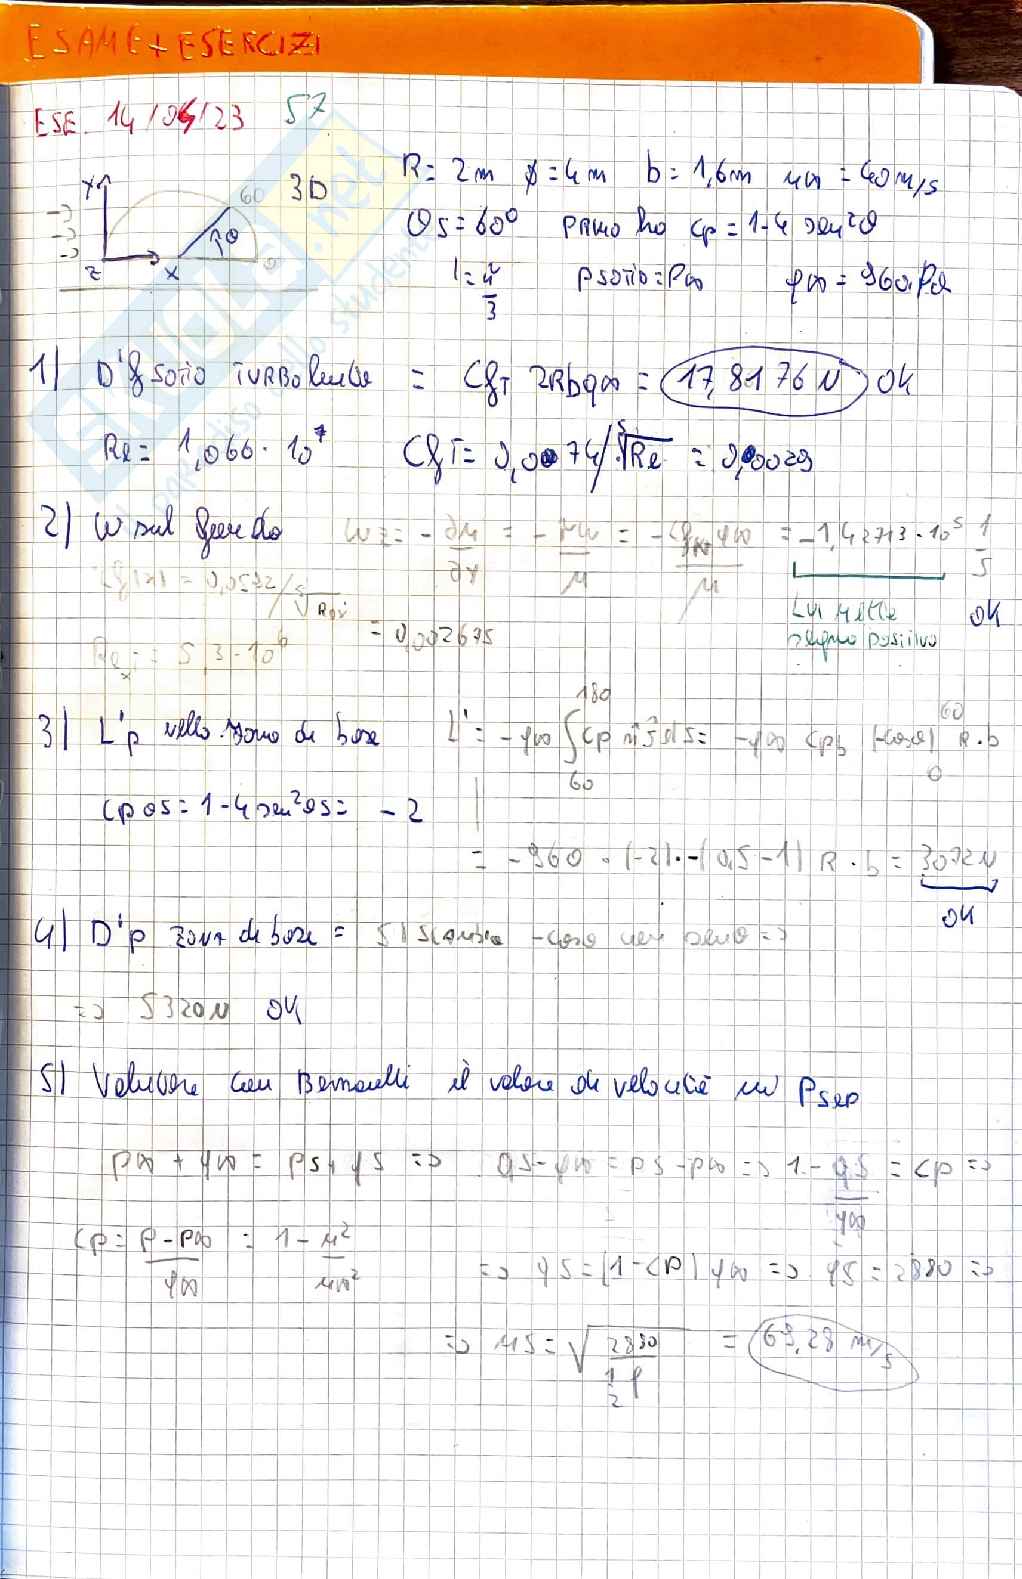 ESAME + ESERCIZI
ESE. 14/04/23 57
Y 60 3D R = 2m ϕ = 4m b = 1,6m u∞ = 40 m/s
θ 0 θs = 60° PRIMO ho cp = 1-4 sen²θ
Z X l = π/3 psotto = p∞ q∞ = 960 Pa
1) D'f SOTTO TURBOlento = CfT 2Rbq∞ = 17,8176 N OK
Re = 1,066 · 10⁷ CfT = 0,074/⁵√Re = 0,0029
2) W sul fondo ωz = -∂u/∂y = -τw/μ = -Cf q∞/μ = -1,42713 · 10⁵ 1/s
Cf(x) = 0,0592/⁵√Rex = 0,002675
Lui mette segno positivo OK
Rex = 5,3 · 10⁶
3) L'p nella zona di base L' = -q∞ ∫₆₀¹⁸⁰ cp n·j dS = -q∞ cpb (-cosθ)|₀⁶⁰ R · b
cpθs = 1-4 sen²θs = -2
= -960 · (-2) · -(0,5-1) R · b = 3072 N
OK
4) D'p zona di base = si scambia -cosθ con senθ =>
=> 5320N OK
5) Valutare con Bernoulli il valore di velocità in Psep
p∞ + q∞ = ps + qs => qs - q∞ = ps - p∞ => 1 - qs/q∞ = cp =>
cp = p-p∞/q∞ = 1 - u²/u∞²
=> qs = (1-cp) q∞ => qs = 2880 =>
=> us = √2880/½ρ = 69,28 m/s